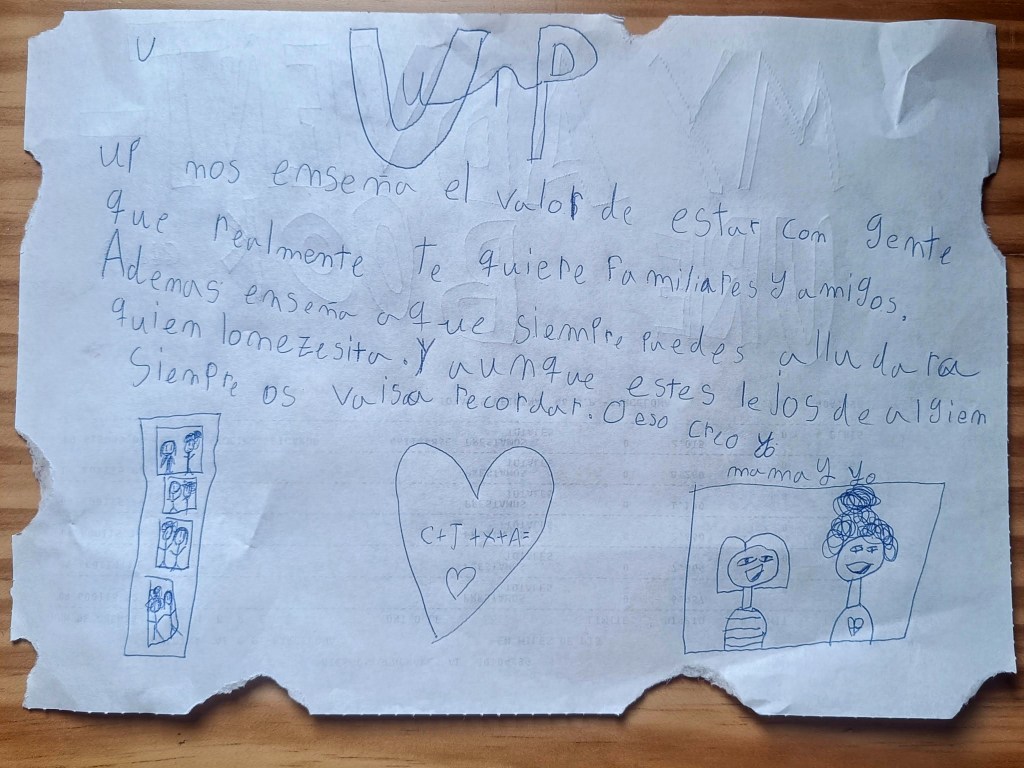 U
UP
UP nos enseña el valor de estar con gente
que realmente te quiere familiares y amigos.
Ademas enseña a que siempre puedes alludar a
quien lo nezesita. Y aunque estes lejos de algien
Siempre os vais a recordar. O eso creo yo
mama y yo
C+J+X+A=